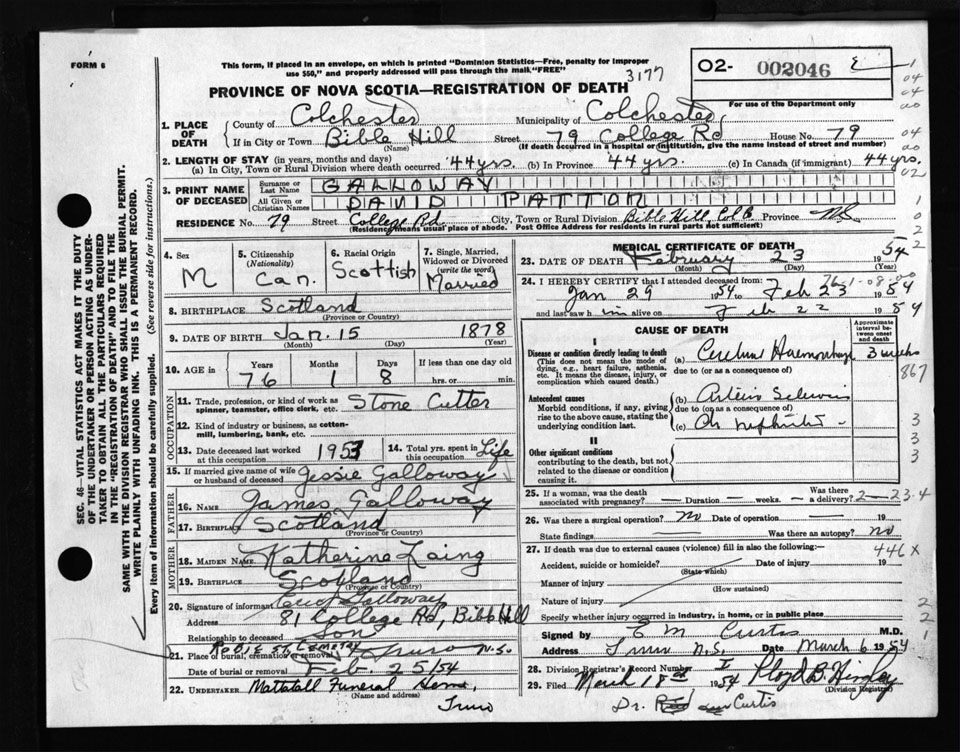 FORM 6
This form, if placed in an envelope, on which is printed "Dominion Statistics—Free, penalty for improper
use $50," and properly addressed will pass through the mail "FREE"
3177
O2- 002046
For use of the Department only
PROVINCE OF NOVA SCOTIA—REGISTRATION OF DEATH
1. PLACE OF DEATH
County of Colchester Municipality of Colchester
If in City or Town Bible Hill Street 79 College Rd House No. 79
(Name) (If death occurred in a hospital or institution, give the name instead of street and number)
2. LENGTH OF STAY (in years, months and days)
(a) In City, Town or Rural Division where death occurred 44 yrs. (b) In Province 44 yrs. (c) In Canada (if immigrant) 44 yrs.
3. PRINT NAME OF DECEASED
Surname or Last Name GALLOWAY
All Given or Christian Names DAVID PATTON
RESIDENCE No. 79 Street College Rd City, Town or Rural Division Bible Hill, Col Province N.S.
(Residence means usual place of abode. Post Office Address for residents in rural parts not sufficient)
4. Sex M
5. Citizenship (Nationality) Can.
6. Racial Origin Scottish
7. Single, Married, Widowed or Divorced (write the word) Married
8. BIRTHPLACE Scotland
(Province or Country)
9. DATE OF BIRTH Jan. 15 1878
(Month) (Day) (Year)
10. AGE in Years 76 Months 1 Days 8 If less than one day old hrs. or min.
OCCUPATION
11. Trade, profession, or kind of work as spinner, teamster, office clerk, etc. Stone Cutter
12. Kind of industry or business, as cotton-mill, lumbering, bank, etc.
13. Date deceased last worked at this occupation 1953
14. Total yrs. spent in this occupation Life
15. If married give name of wife or husband of deceased Jessie Galloway
FATHER
16. Name James Galloway
17. Birthplace Scotland
(Province or Country)
MOTHER
18. MAIDEN NAME Katherine Laing
19. BIRTHPLACE Scotland
(Province or Country)
20. Signature of informant Galloway
Address 81 College Rd, Bible Hill
Relationship to deceased Son
21. Place of burial, cremation or removal Robie St. Cemetery Truro N.S.
Date of burial or removal Feb. 25/54
22. UNDERTAKER Mattatall Funeral Home,
(Name and address)
Truro
MEDICAL CERTIFICATE OF DEATH
23. DATE OF DEATH February 23 1954
(Month) (Day) (Year)
24. I HEREBY CERTIFY that I attended deceased from:
Jan 29 1954 to Feb 23 1954
and last saw him alive on Feb 22 1954
CAUSE OF DEATH
Approximate interval between onset and death
I
Disease or condition directly leading to death (This does not mean the mode of dying, e.g., heart failure, asthenia, etc. It means the disease, injury, or complication which caused death.)
(a) Cerebral Haemorrhage 3 weeks
due to (or as a consequence of)
867
Antecedent causes
Morbid conditions, if any, giving rise to the above cause, stating the underlying condition last.
(b) Arterio Sclerosis
due to (or as a consequence of)
(c) Ch nephritis
II
Other significant conditions contributing to the death, but not related to the disease or condition causing it.
25. If a woman, was the death associated with pregnancy? — Duration — weeks. — Was there a delivery?
2—23.4
26. Was there a surgical operation? No Date of operation — 19
State findings — Was there an autopsy? no
27. If death was due to external causes (violence) fill in also the following:—
446X
Accident, suicide or homicide? Date of injury 19
(State which)
Manner of injury
(How sustained)
Nature of injury
Specify whether injury occurred in industry, in home, or in public place
Signed by E M Curtis M.D.
Address Truro N.S. Date March 6 1954
28. Division Registrar's Record Number I
29. Filed March 18th 1954 Lloyd B. Hingley
(Division Registrar)
Dr. Curtis
SEC. 46—VITAL STATISTICS ACT MAKES IT THE DUTY
OF THE UNDERTAKER OR PERSON ACTING AS UNDER-
TAKER TO OBTAIN ALL THE PARTICULARS REQUIRED
IN THE "REGISTRATION OF DEATH" AND TO FILE THE
SAME WITH THE DIVISION REGISTRAR WHO SHALL ISSUE THE BURIAL PERMIT.
WRITE PLAINLY WITH UNFADING INK. THIS IS A PERMANENT RECORD.
Every item of information should be carefully supplied. (See reverse side for instructions.)